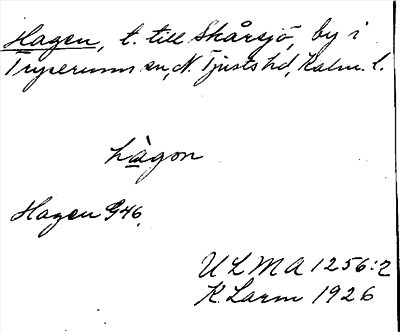 Hagen, t. till Skårsjö, by i
Tryserums sn, N. Tjusts hd, Kalm. l.
hàgon
Hagen G46.
ULMA 1256:2
K. Larm 1926